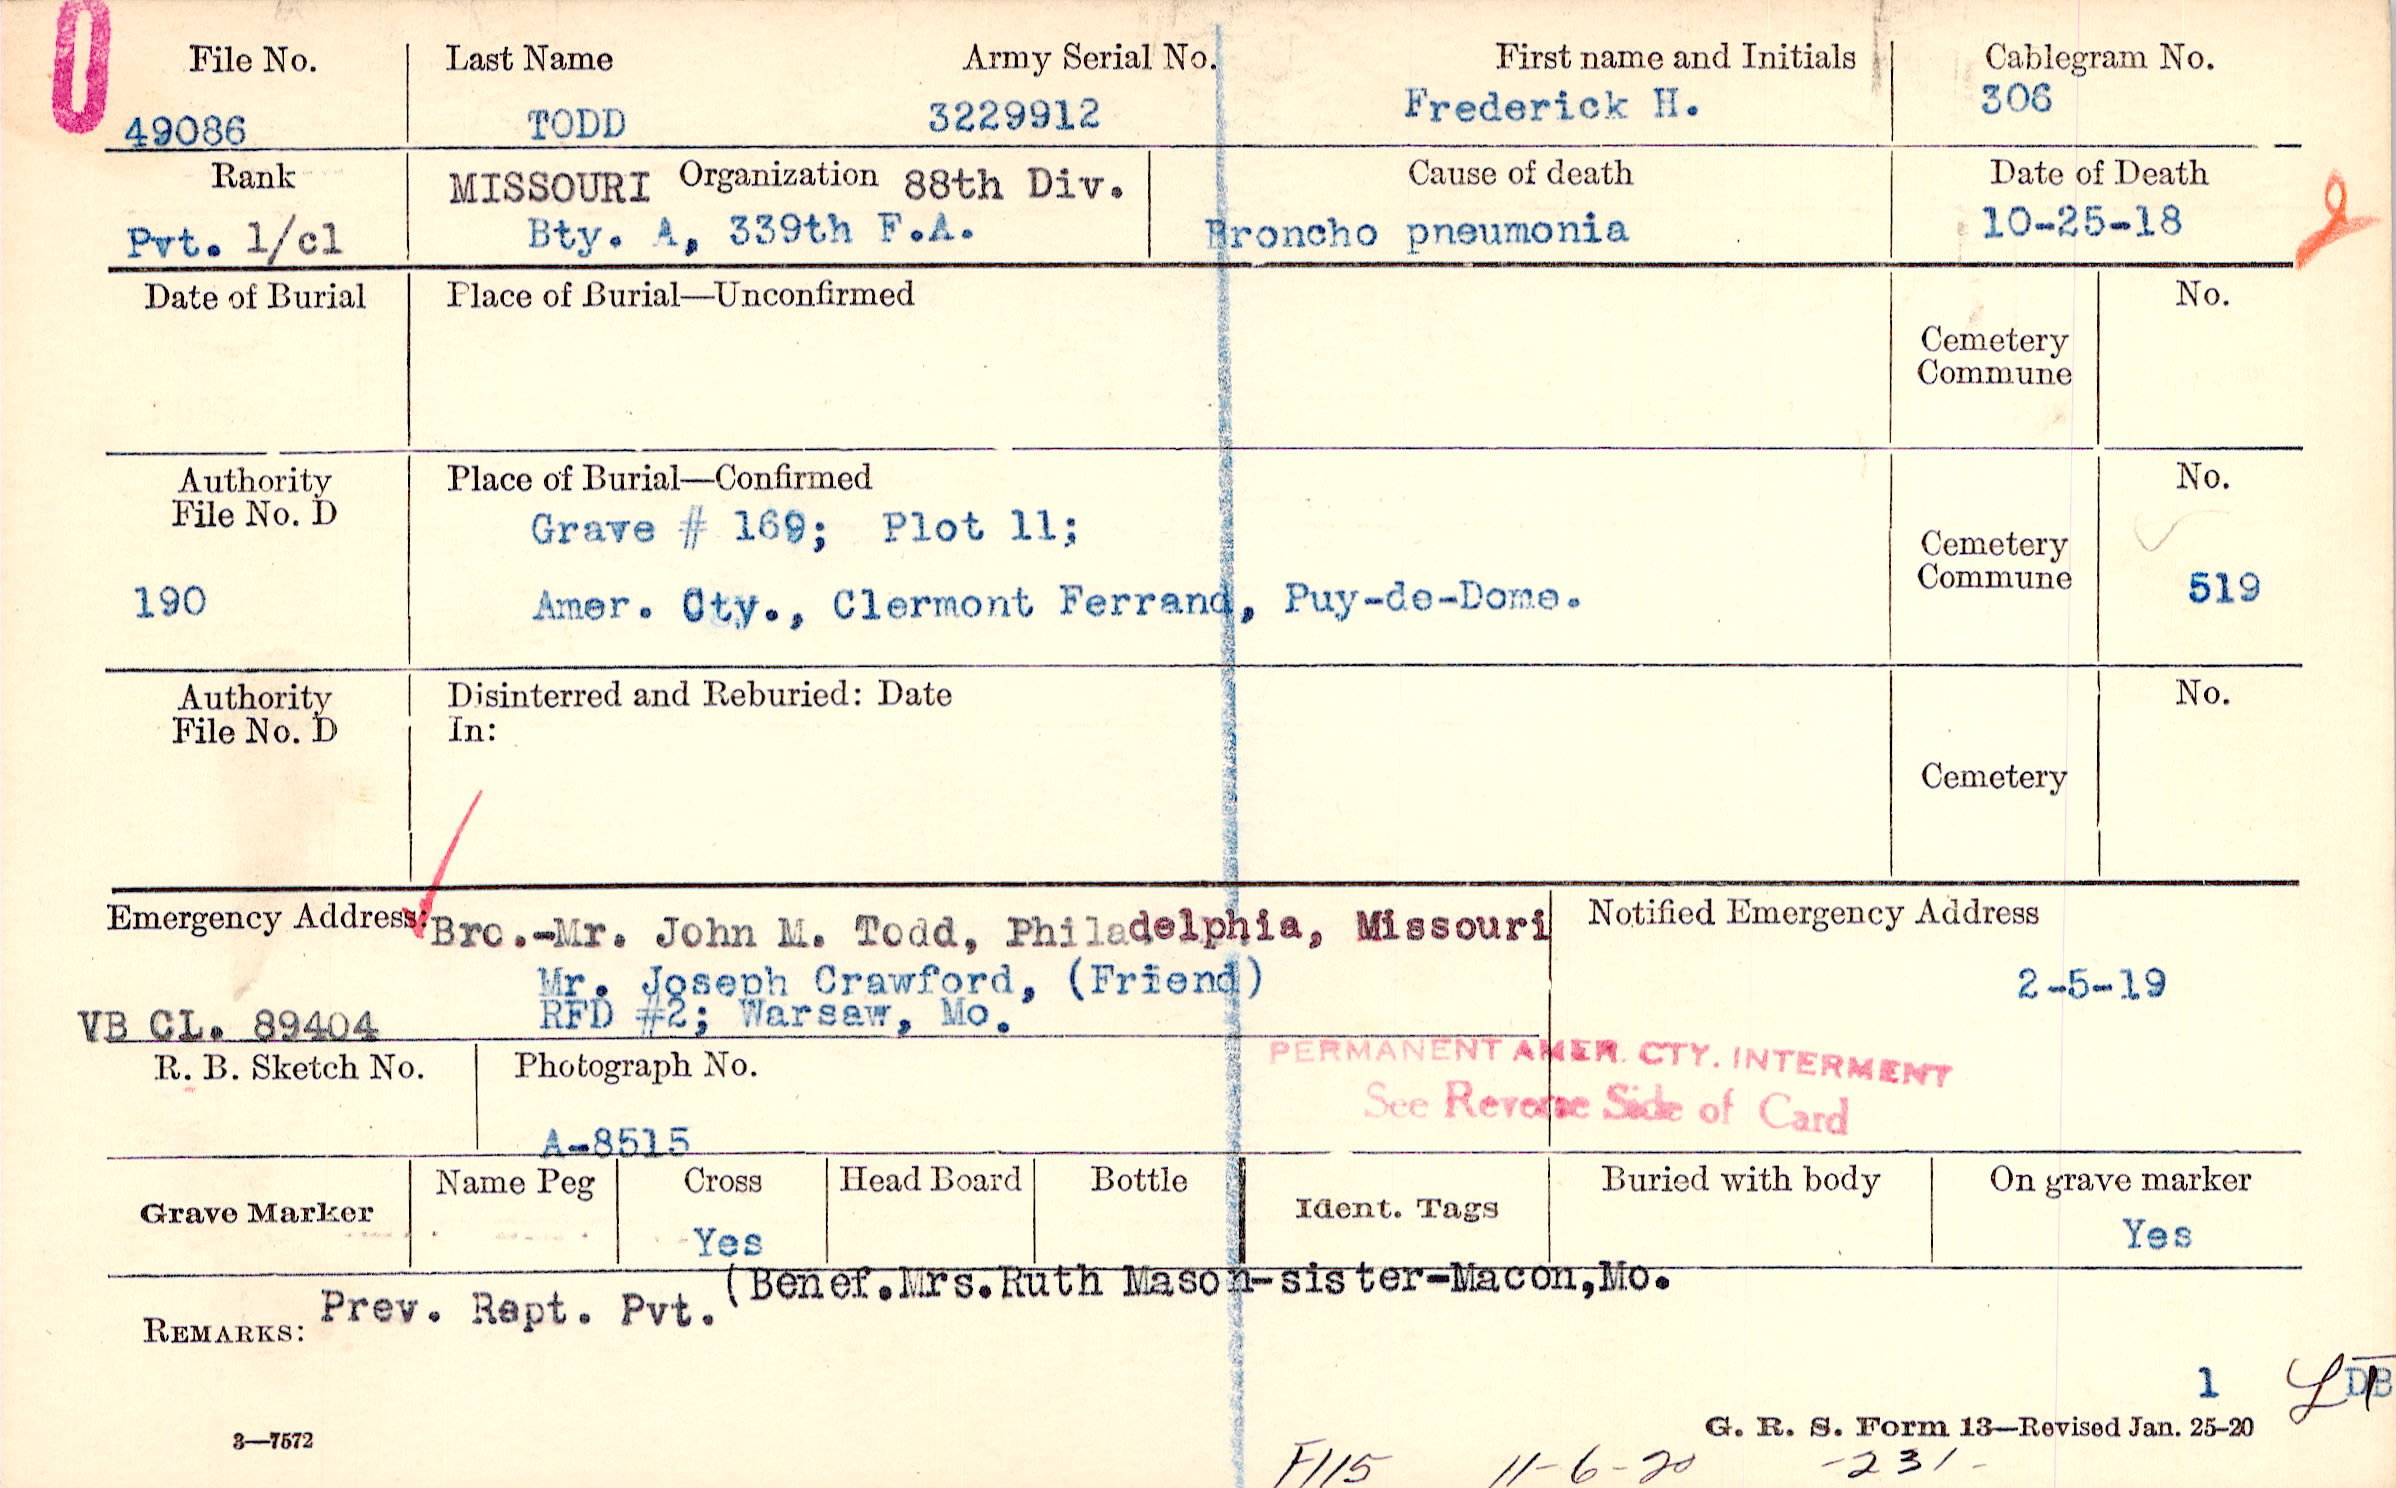 File No. Last Name Army Serial No. First name and Initials Cablegram No.
49086 TODD 3229912 Frederick H. 306
Rank MISSOURI Organization 88th Div. Cause of death Date of Death
Pvt. 1/cl Bty. A, 339th F.A. Broncho pneumonia 10-25-18
Date of Burial Place of Burial—Unconfirmed No.
Cemetery
Commune
Authority Place of Burial—Confirmed No.
File No. D
Grave # 169; Plot 11;
Cemetery
Commune
190 Amer. Cty., Clermont Ferrand, Puy-de-Dome. 519
Authority Disinterred and Reburied: Date No.
File No. D In:
Cemetery
Emergency Address: Bro.-Mr. John M. Todd, Philadelphia, Missouri Notified Emergency Address
Mr. Joseph Crawford, (Friend) 2-5-19
VB CL. 89404 RFD #2; Warsaw, Mo.
R. B. Sketch No. Photograph No. PERMANENT AMER. CTY. INTERMENT
See Reverse Side of Card
A-8515
Grave Marker Name Peg Cross Head Board Bottle Ident. Tags Buried with body On grave marker
Yes Yes
(Benef.Mrs.Ruth Mason-sister-Macon,Mo.
REMARKS: Prev. Rept. Pvt.
1
G. R. S. Form 13—Revised Jan. 25-20
3—7572
F115 11-6-20 -231-